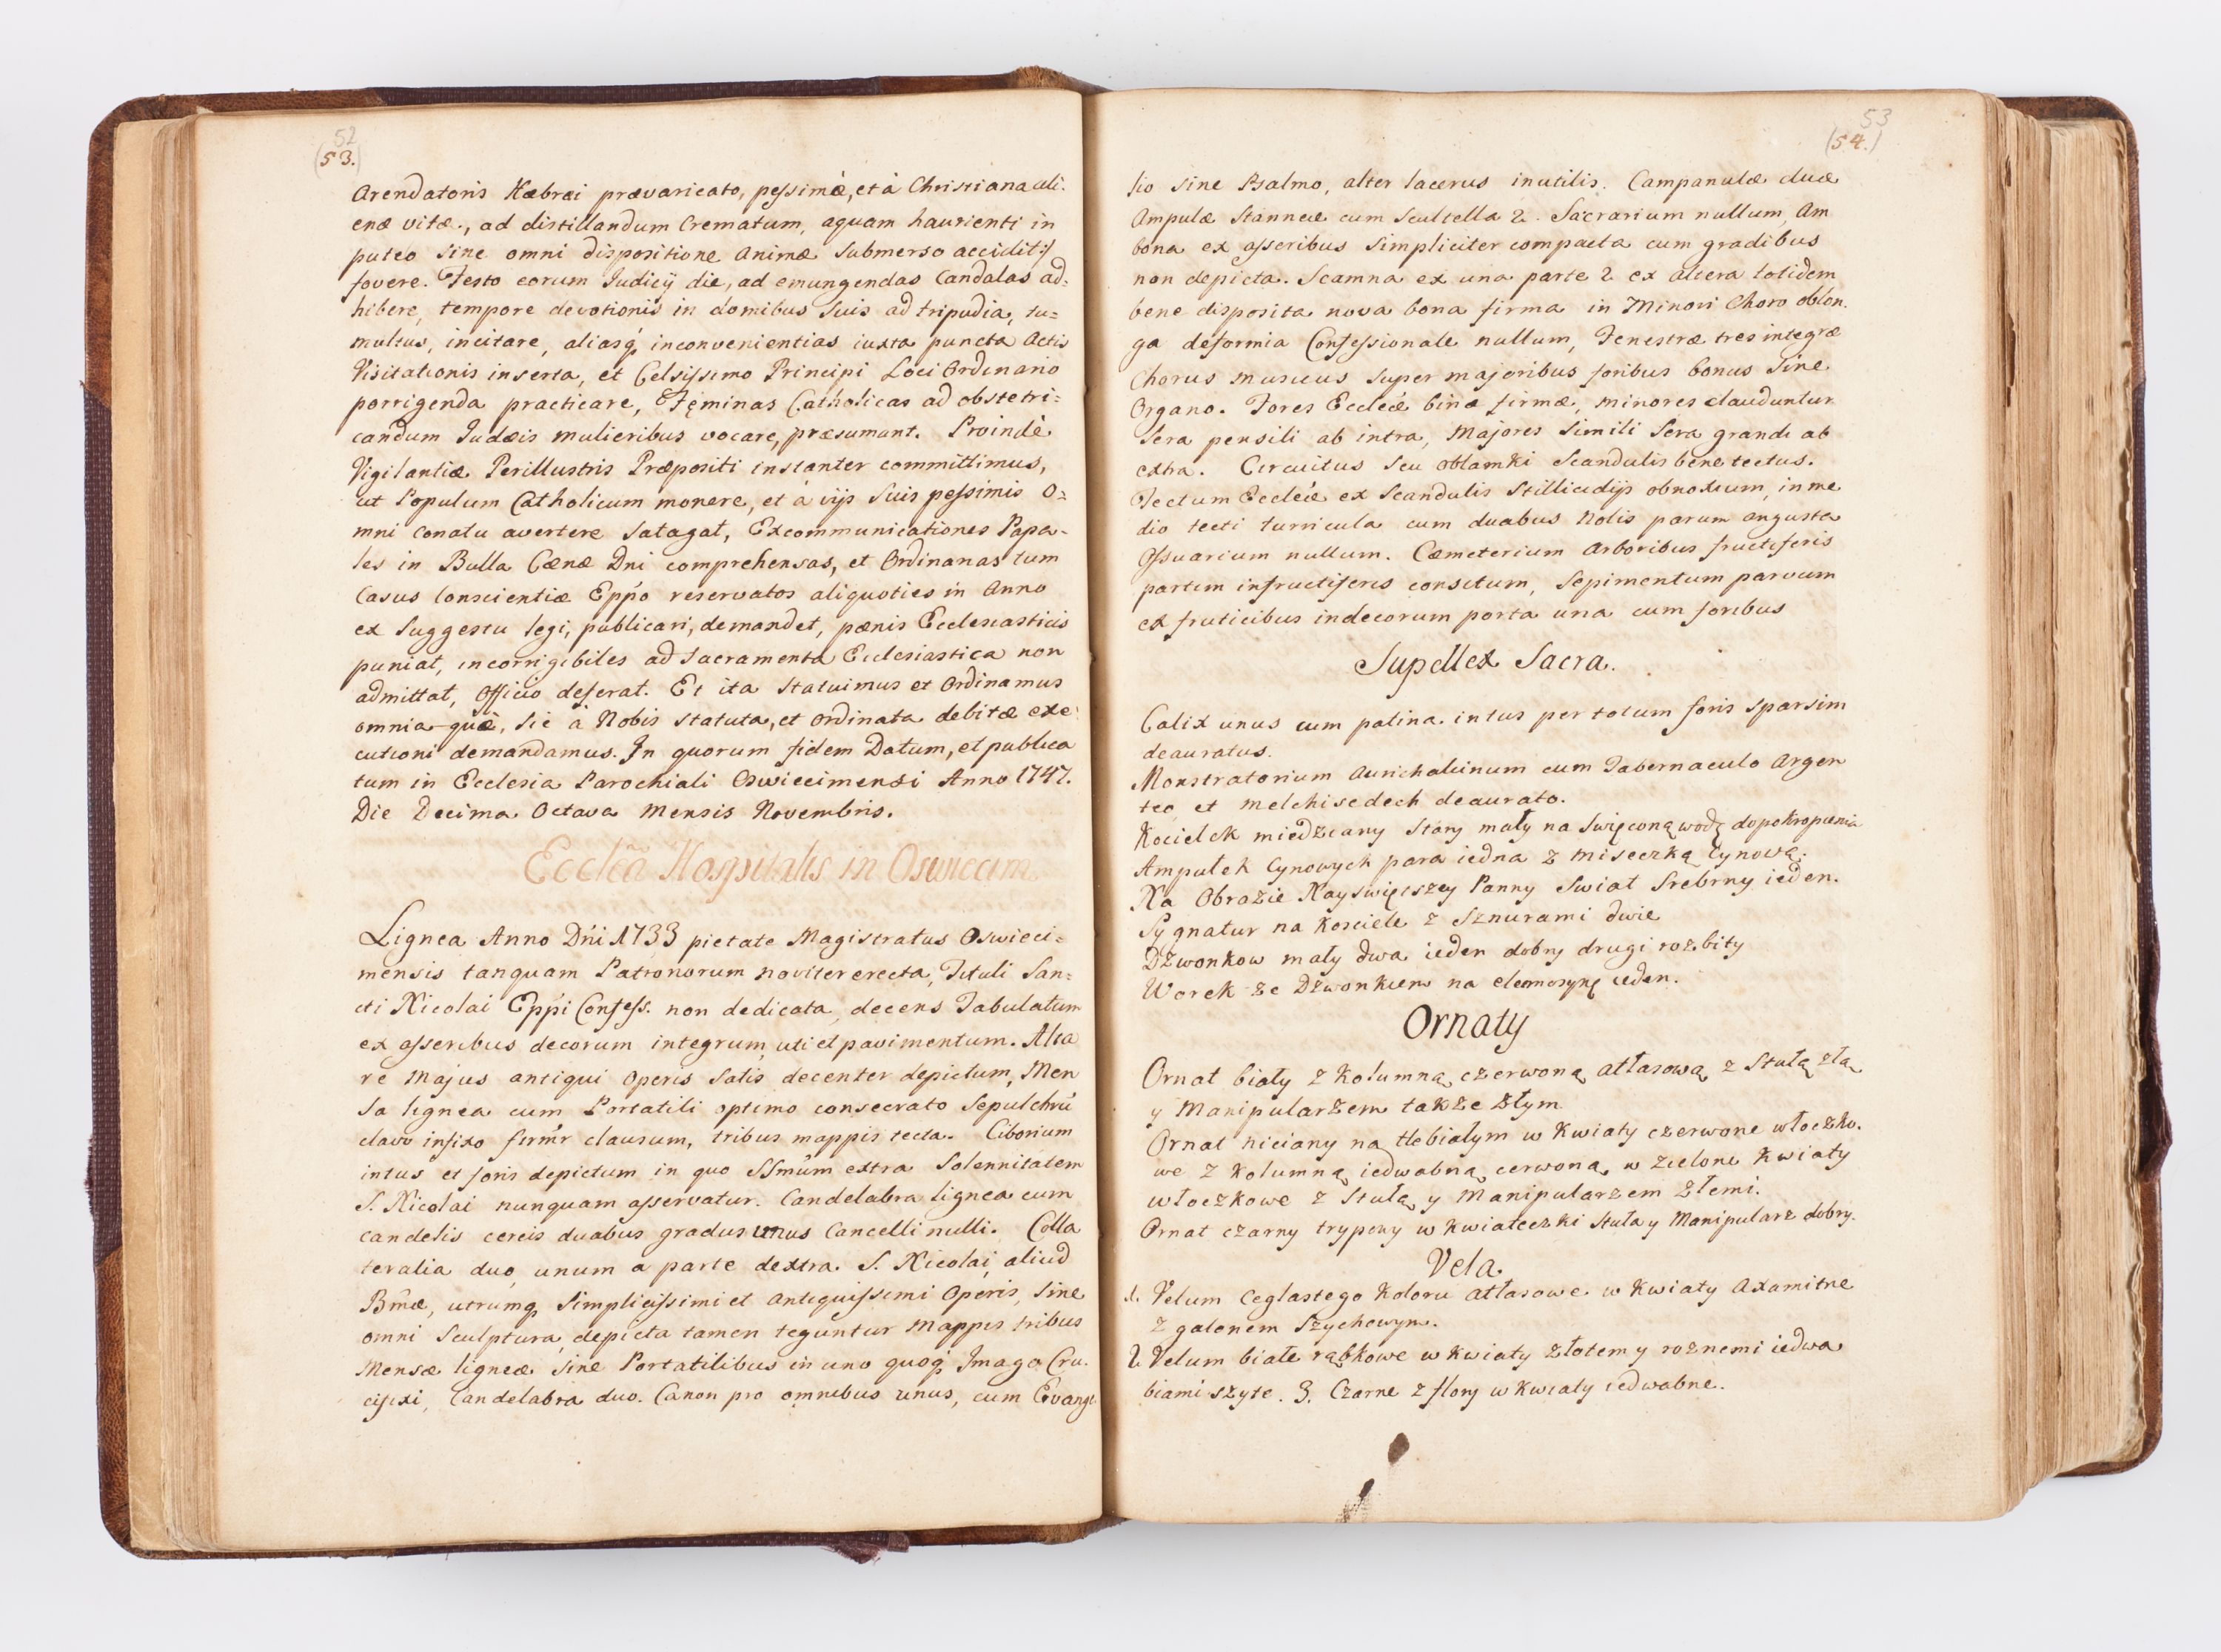 52
(53.)
Arendatoris Hæbræi prævaricato, pessimæ, et à Christiana ali-
enæ vitæ, ad distillandum Crematum, aquam haurienti in
puteo sine omni dispositione Animæ submerso
fovere. Festo eorum Judicij die, ad emungendas Candalas ad=
hibere, tempore devotionis in domibus suis ad tripudia, tu=
multus, incitare, aliasq́ inconvenientias iuxta puncta Actis
Visitationis inserta, et Celsissimo Principi Loci Ordinario
porrigenda practicare, Fęminas Catholicas ad obstetri=
candum Judæis mulieribus vocare, præsumant. Proindè
Vigilantiæ Perillustris Præpositi instanter committimus,
ut Populum Catholicum monere, et à vijs suis pessimis o=
mni conatu avertere satagat, Excommunicationes Papa-
les in Bulla Cænæ Dni comprehensas, et Ordinarias tum
Casus Conscientiæ Eppo reservatos aliquoties in Anno
ex suggestu legi, publicari, demandet, pænis Ecclesiasticis
puniat, incorrigibiles ad Sacramenta Ecclesiastica non
admittat, Officio deferat. Et ita statuimus et Ordinamus
omnia quæ, sic à Nobis statuta, et ordinata debitæ exe
cutioni demandamus. In quorum fidem Datum, et publica
tum in Ecclesia Parochiali Oswiecimensi Anno 1747.
Die Decima Octava Mensis Novembris.
Ecclĩa Hospitalis in Oswiecim
Lignea Anno Dńi 1733 pietate Magistratus Oswieci=
mensis tanquam Patronorum noviter erecta, Tituli San=
cti Nicolai Eppi Confess. non dedicata, decens Tabulatum
ex asseribus decorum integrum, uti et pavimentum. Alta
re Majus antiqui Operis satis decenter depictum, Men
sa lignea cum Portatili optimo consecrato Sepulchrū
clavo infixo firmr clausum, tribus mappis tecta. Ciborium
intus et foris depictum in quo SSmūm extra Solennitatem
S. Nicolai nunquam asservatur. Candelabra lignea cum
candelis cereis duabus gradus unus Cancelli nulli. Colla
teralia duo, unum a parte dextra S. Nicolai, aliud
Bmæ, utrumq simplicissimi et antiquissimi Operis, sine
omni Sculptura, depicta tamen teguntur Mappis tribus
Mensæ ligneæ sine Portatilibus in uno quoq́ Imago Cru.
cifixi, Candelabra duo. Canon pro omnibus unus, cum Evange
53
(54.)
lio sine Psalmo, alter lacerus inutilis. Campanulæ duæ
Ampulæ Stanneæ cum Scultella 2. Sacrarium nullum, Am
bona ex asseribus simpliciter compacta cum gradibus
non depicta. Scamna ex una parte 2 ex altera totidem
bene disposita nova bona firma in Minori Choro oblon.
ga deformia Confessionale nullum, Fenestræ tres integræ
Chorus musicus super majoribus foribus bonus sine
Organo. Fores Eccleæ binæ firmæ, minores clauduntur
Sera pensili ab intra, Majores simili Sera grandi ab
extra. Circuitus seu oblamki Scandulis bene tectus.
Tectum Eccleæ ex Scandulis Stillicidijs obnoxium, in me
dio tecti turricula cum duabus Nolis parum angusta
Ossuarium nullum. Cæmeterium Arboribus fructiferis
partim infructiferis consitum, Sepimentum parvum
ex fruticibus indecorum porta una cum foribus
Supellex Sacra.
Calix unus cum patina intus per totum foris sparsim
deauratus.
Monstratorium Aurichalcinum cum Tabernaculo Argen
teo, et melchisedech deaurato.
Kocielek miedziany stary mały na święconą wodę do pokropienia
Ampułek Cynowych para iedna z miseczką Cynową.
Na Obrazie Nayswiętszey Panny Swiat Srebrny ieden.
Sygnatur na kosciele z sznurami dwie
Dzwonkow mały dwa ieden dobry drugi rozbity
Worek ze Dzwonkiem na eleomosynę ieden.
Ornaty
Ornat biały z kolumną czerwoną atłasową z Stułą złą
y Manipularzem także złym
Ornat niciany na tle białym w kwiaty czerwone włoczko.
we z kolumną iedwabną cerwoną w zielone kwiaty
włoczkowe z Stułą y Manipularzem złemi.
Ornat czarny trypowy w kwiateczki stuła y Manipularz dobry.
Vela
1. Velum Ceglastego koloru atłasowe w kwiaty Axamitne
z galonem Szychowym.
2 Velum białe rąbkowe w kwiaty złotem y roznemi iedwa
biami szyte. 3. Czarne z flory w kwiaty iedwabne.